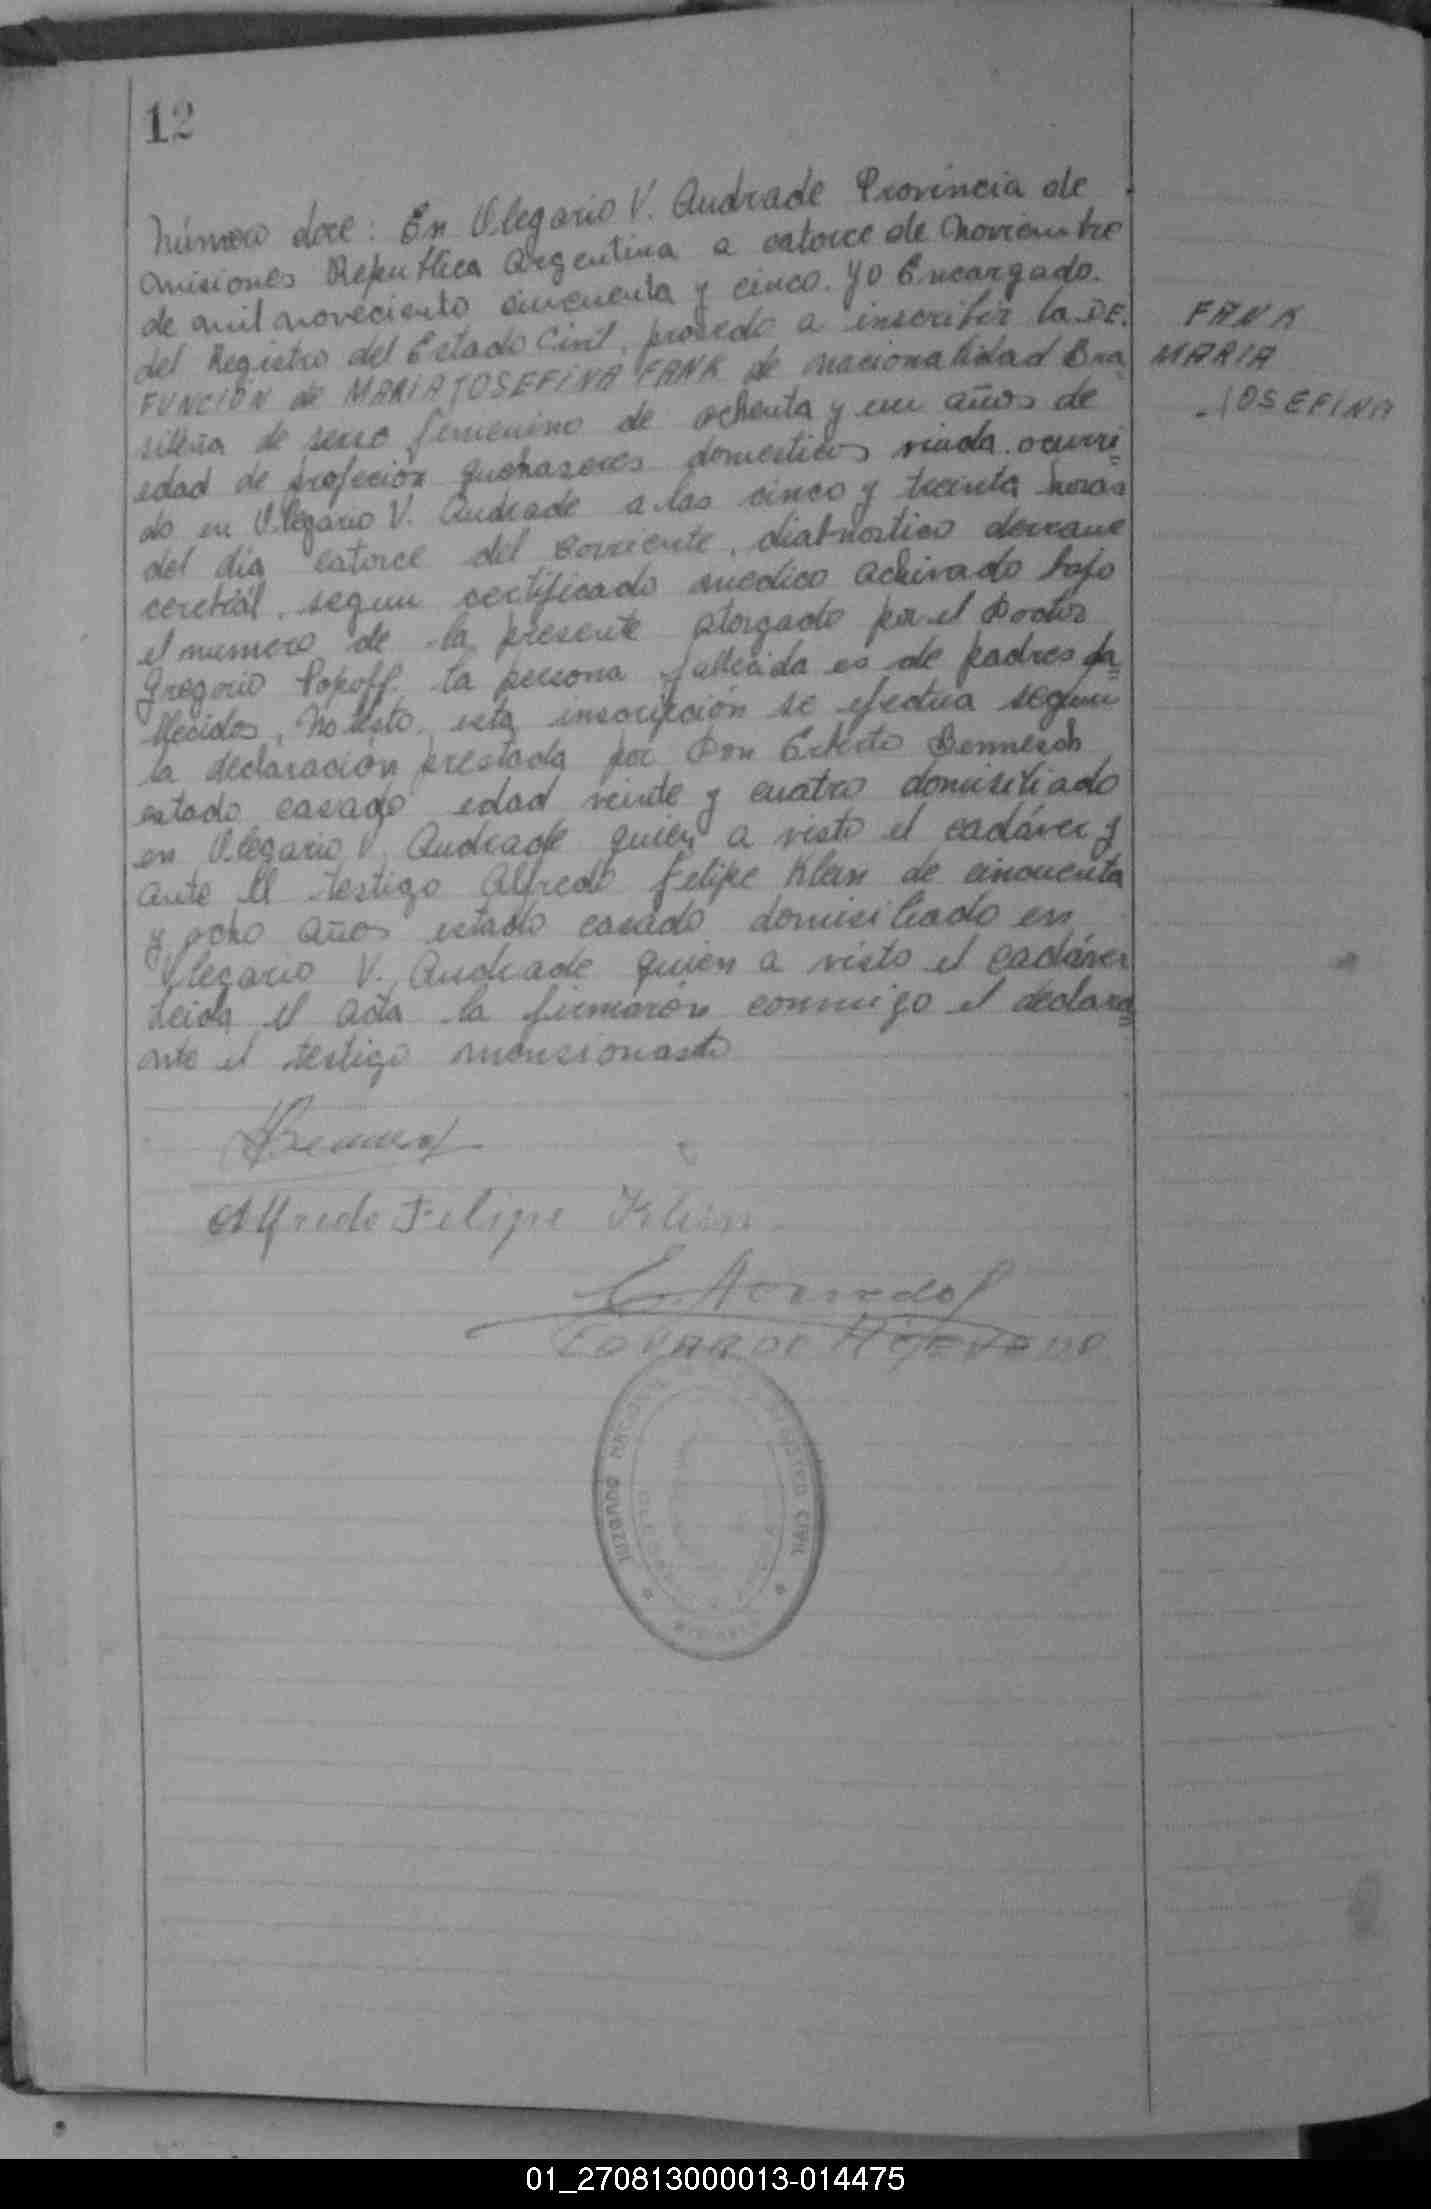 12
Número doce: En Olegario V. Andrade Provincia de
Misiones Republica Argentina a catorce de Noviembre
de mil noveciento cincuenta y cinco. Yo Encargado.
del Registro del Estado Civil, procedo a inscribir la DE.
FUNCIÓN de MARIA JOSEFINA FANK de nacionalidad Bra
sileña de sexo femenino de ochenta y un años de
edad de profeción quehaseres domesticos viuda. ocurri=
do en Olegario V. Andrade a las cinco y treinta horas
del día catorce del corriente, diatnostico derrame
cerebral, segun certificado medico achivado bajo
el numero de la presente otorgado por el Doctor
Gregorio Popoff. la persona fallecida es de padres fa=
llecidos, No testo, esta inscripción se efectua segun
la declaración prestada por Don Erberto Bennesch
estado casado edad veinte y cuatro domisiliado
en Olegario V. Andrade quien a visto el cadáver y
ante el testigo Alfredo Felipe Klein de cincuenta
y ocho años estado casado domisiliado en
Olegario V. Andrade quien a visto el cadáver
Leida el acta la firmarón conmigo el declara=
ante el testigo mensionado
Alfredo Felipe Klein
E. Acevedo
EDUARDO ACEVEDO
FANK
MARIA
JOSEFINA
JUZGADO
REGISTRO CIVIL
MISIONES
01_270813000013-014475